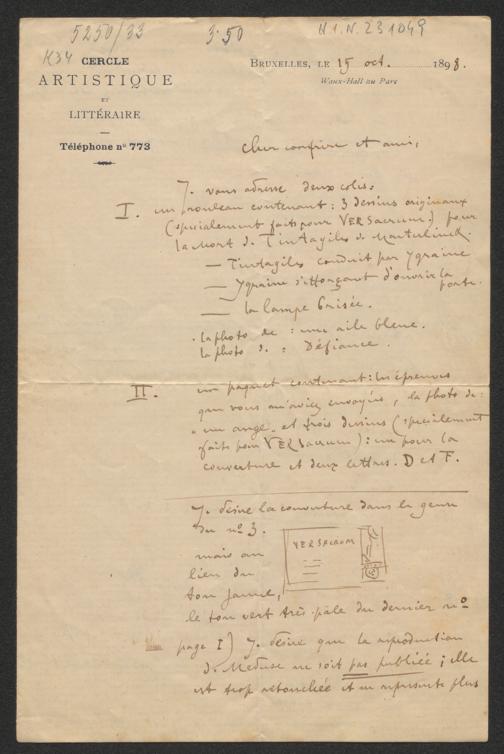 5250/33 3.50 H.I.N. 231049
K34
CERCLE
ARTISTIQUE
ET
LITTÉRAIRE
Téléphone nº 773
BRUXELLES, LE 15 oct. 1898.
Waux-Hall au Parc
Cher confrère et ami,
Je vous adresse deux colis :
I. un rouleau contenant : 3 dessins originaux
(spécialement faits pour VER Sacrum) pour
la Mort de Tintagiles de Maeterlinck.
— Tintagiles conduit par Ygraine
— Ygraine s'efforçant d'ouvrir la
porte.
— la lampe brisée.
. la photo de : une aile bleue.
la photo de : Défiance.
II. un paquet contenant : les épreuves
que vous m'aviez envoyées, la photo de :
"un ange" et trois dessins (spécialement
faits pour VER Sacrum) : un pour la
couverture et deux lettres. D et F.
Je désire la couverture dans le genre
du nº 3.
VER SACRUM
mais au
lieu du
ton jaune,
le ton vert très pâle du dernier nº
page I) Je désire que la reproduction
de Meduse ne soit pas publiée ; elle
est trop retouchée et ne représente plus